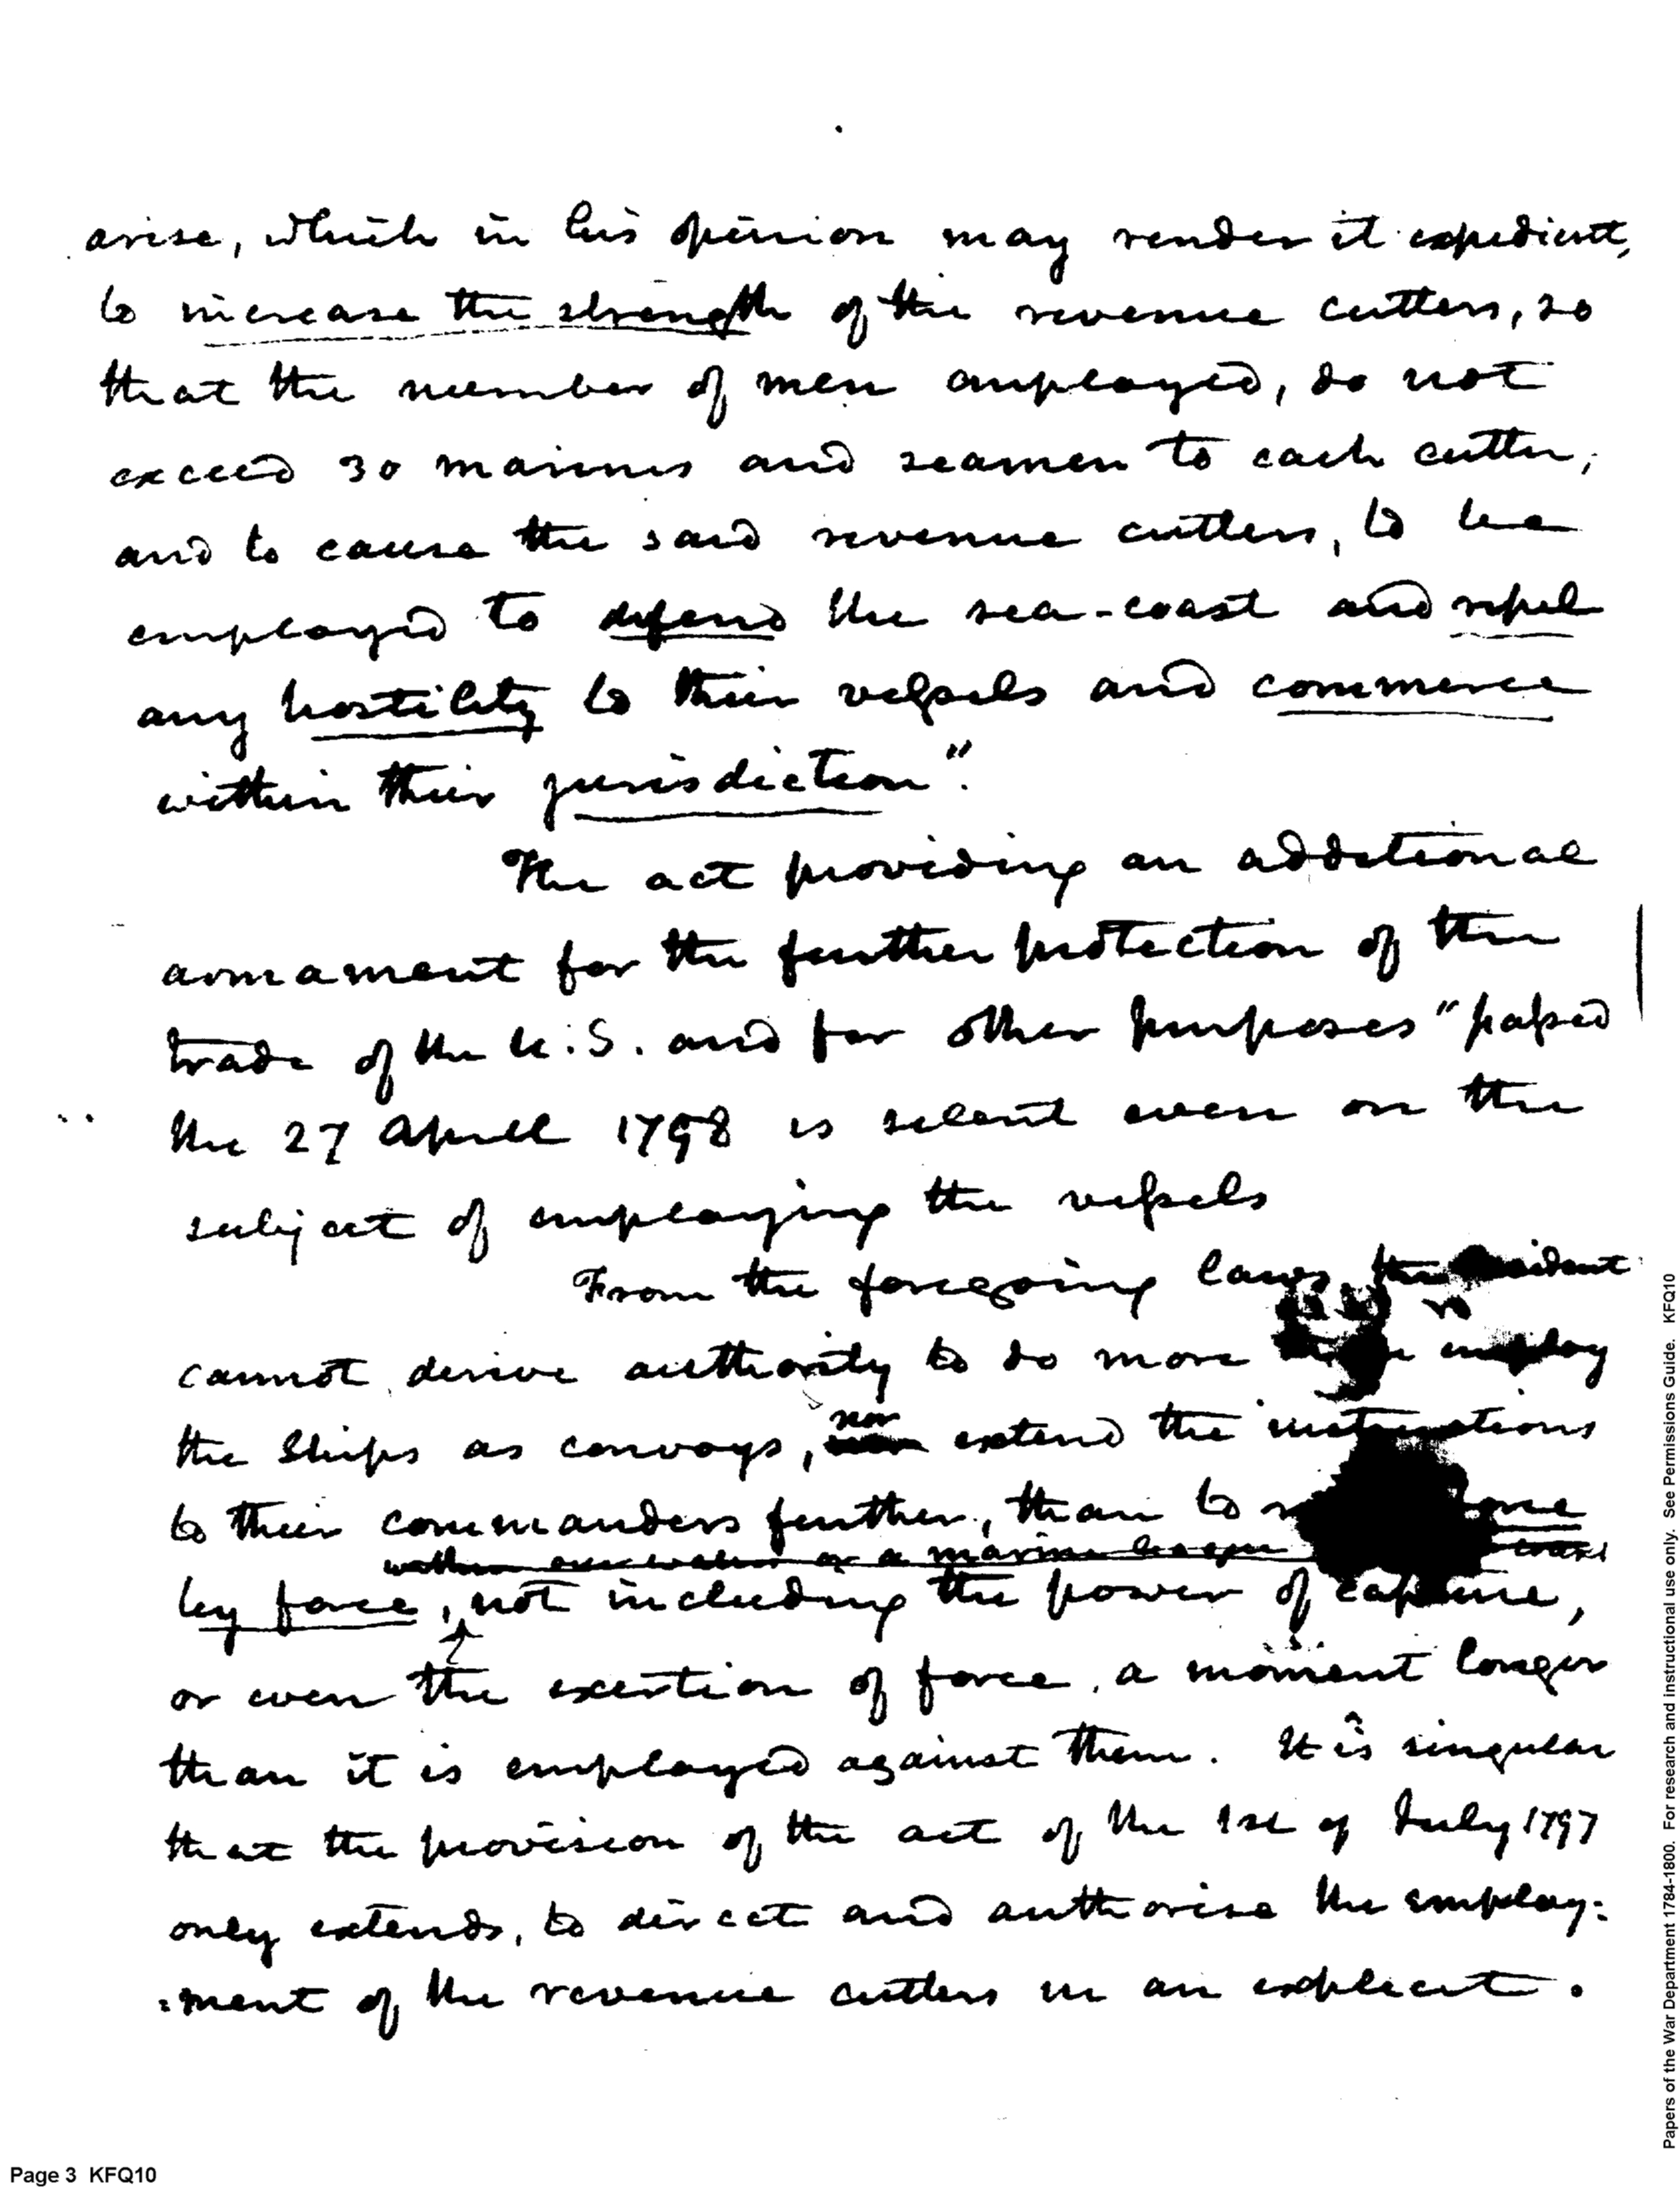 arise, which in his opinion may render it expedient,
to increase the strength of the revenue cutters, so
that the number of men employed, do not
exceed 30 marines and seamen to each cutter,
and to cause the said revenue cutters, to be
employed to defend the sea-coast and repel
any hostility to their vessels and commerce
within their jurisdiction".
The act providing an additional
armament for the further protection of the
trade of the U.S. and for other purposes" passed
the 27 April 1798 is silent even on the
subject of employing the vessels
From the foregoing laws, the
cannot derive authority to do more employ
nor
the Ships as convoys, extend the instructions
to their commanders further, than to
within our waters or a marine league
by force, not including the power of capture,
or even the exertion of force, a moment longer
than it is employed against them. It is singular
that the provision of the act of the 1st of July 1797
only extends, to direct and authorise the employ:
:ment of the revenue cutters in an explicit.
Page 3 KFQ10
Papers of the War Department 1784-1800. For research and instructional use only. See Permissions Guide. KFQ10